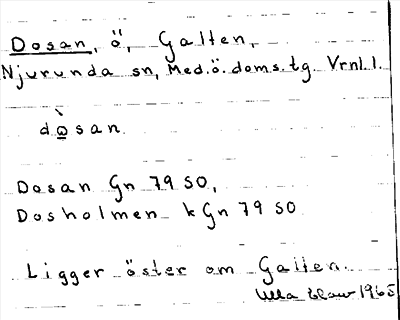 Dosan, ö, Galten,
Njurunda sn, Med.ö.doms.tg. Vrnl.l.
dòsan.
Dosan Gn 79 SO,
Dosholmen kGn 79 SO
Ligger öster om Galten.
Ulla 1965